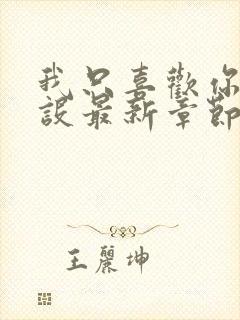 我只喜歡你
設最新章節
王麗坤